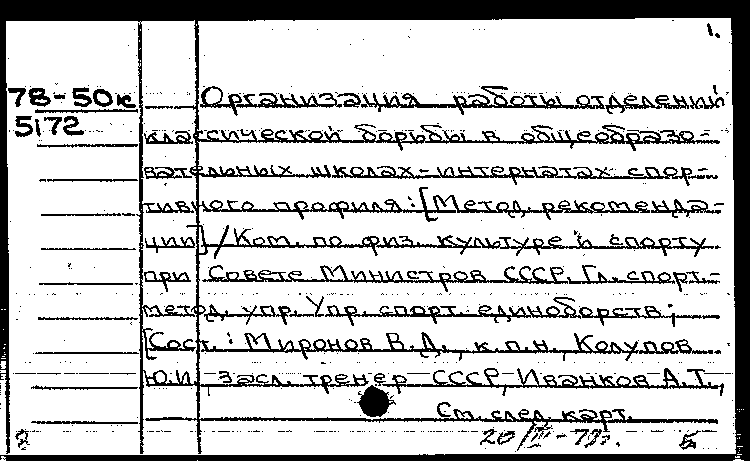 1.
78-50к Организация работы отделений
5172 классической борьбы в общеобразо-
вательных школах-интернатах спор-
тивного профиля: [Метод. рекоменда-
ции] / Ком. по физ. культуре и спорту
при Совете Министров СССР. Гл. спорт.-
метод. упр. Упр. спорт. единоборств;
[Сост.: Миронов В.Д., к.п.н., Колупов
Ю.И. засл. тренер СССР, Иванков А.Т.,
См. след. карт.
8 20/III-79г. 5